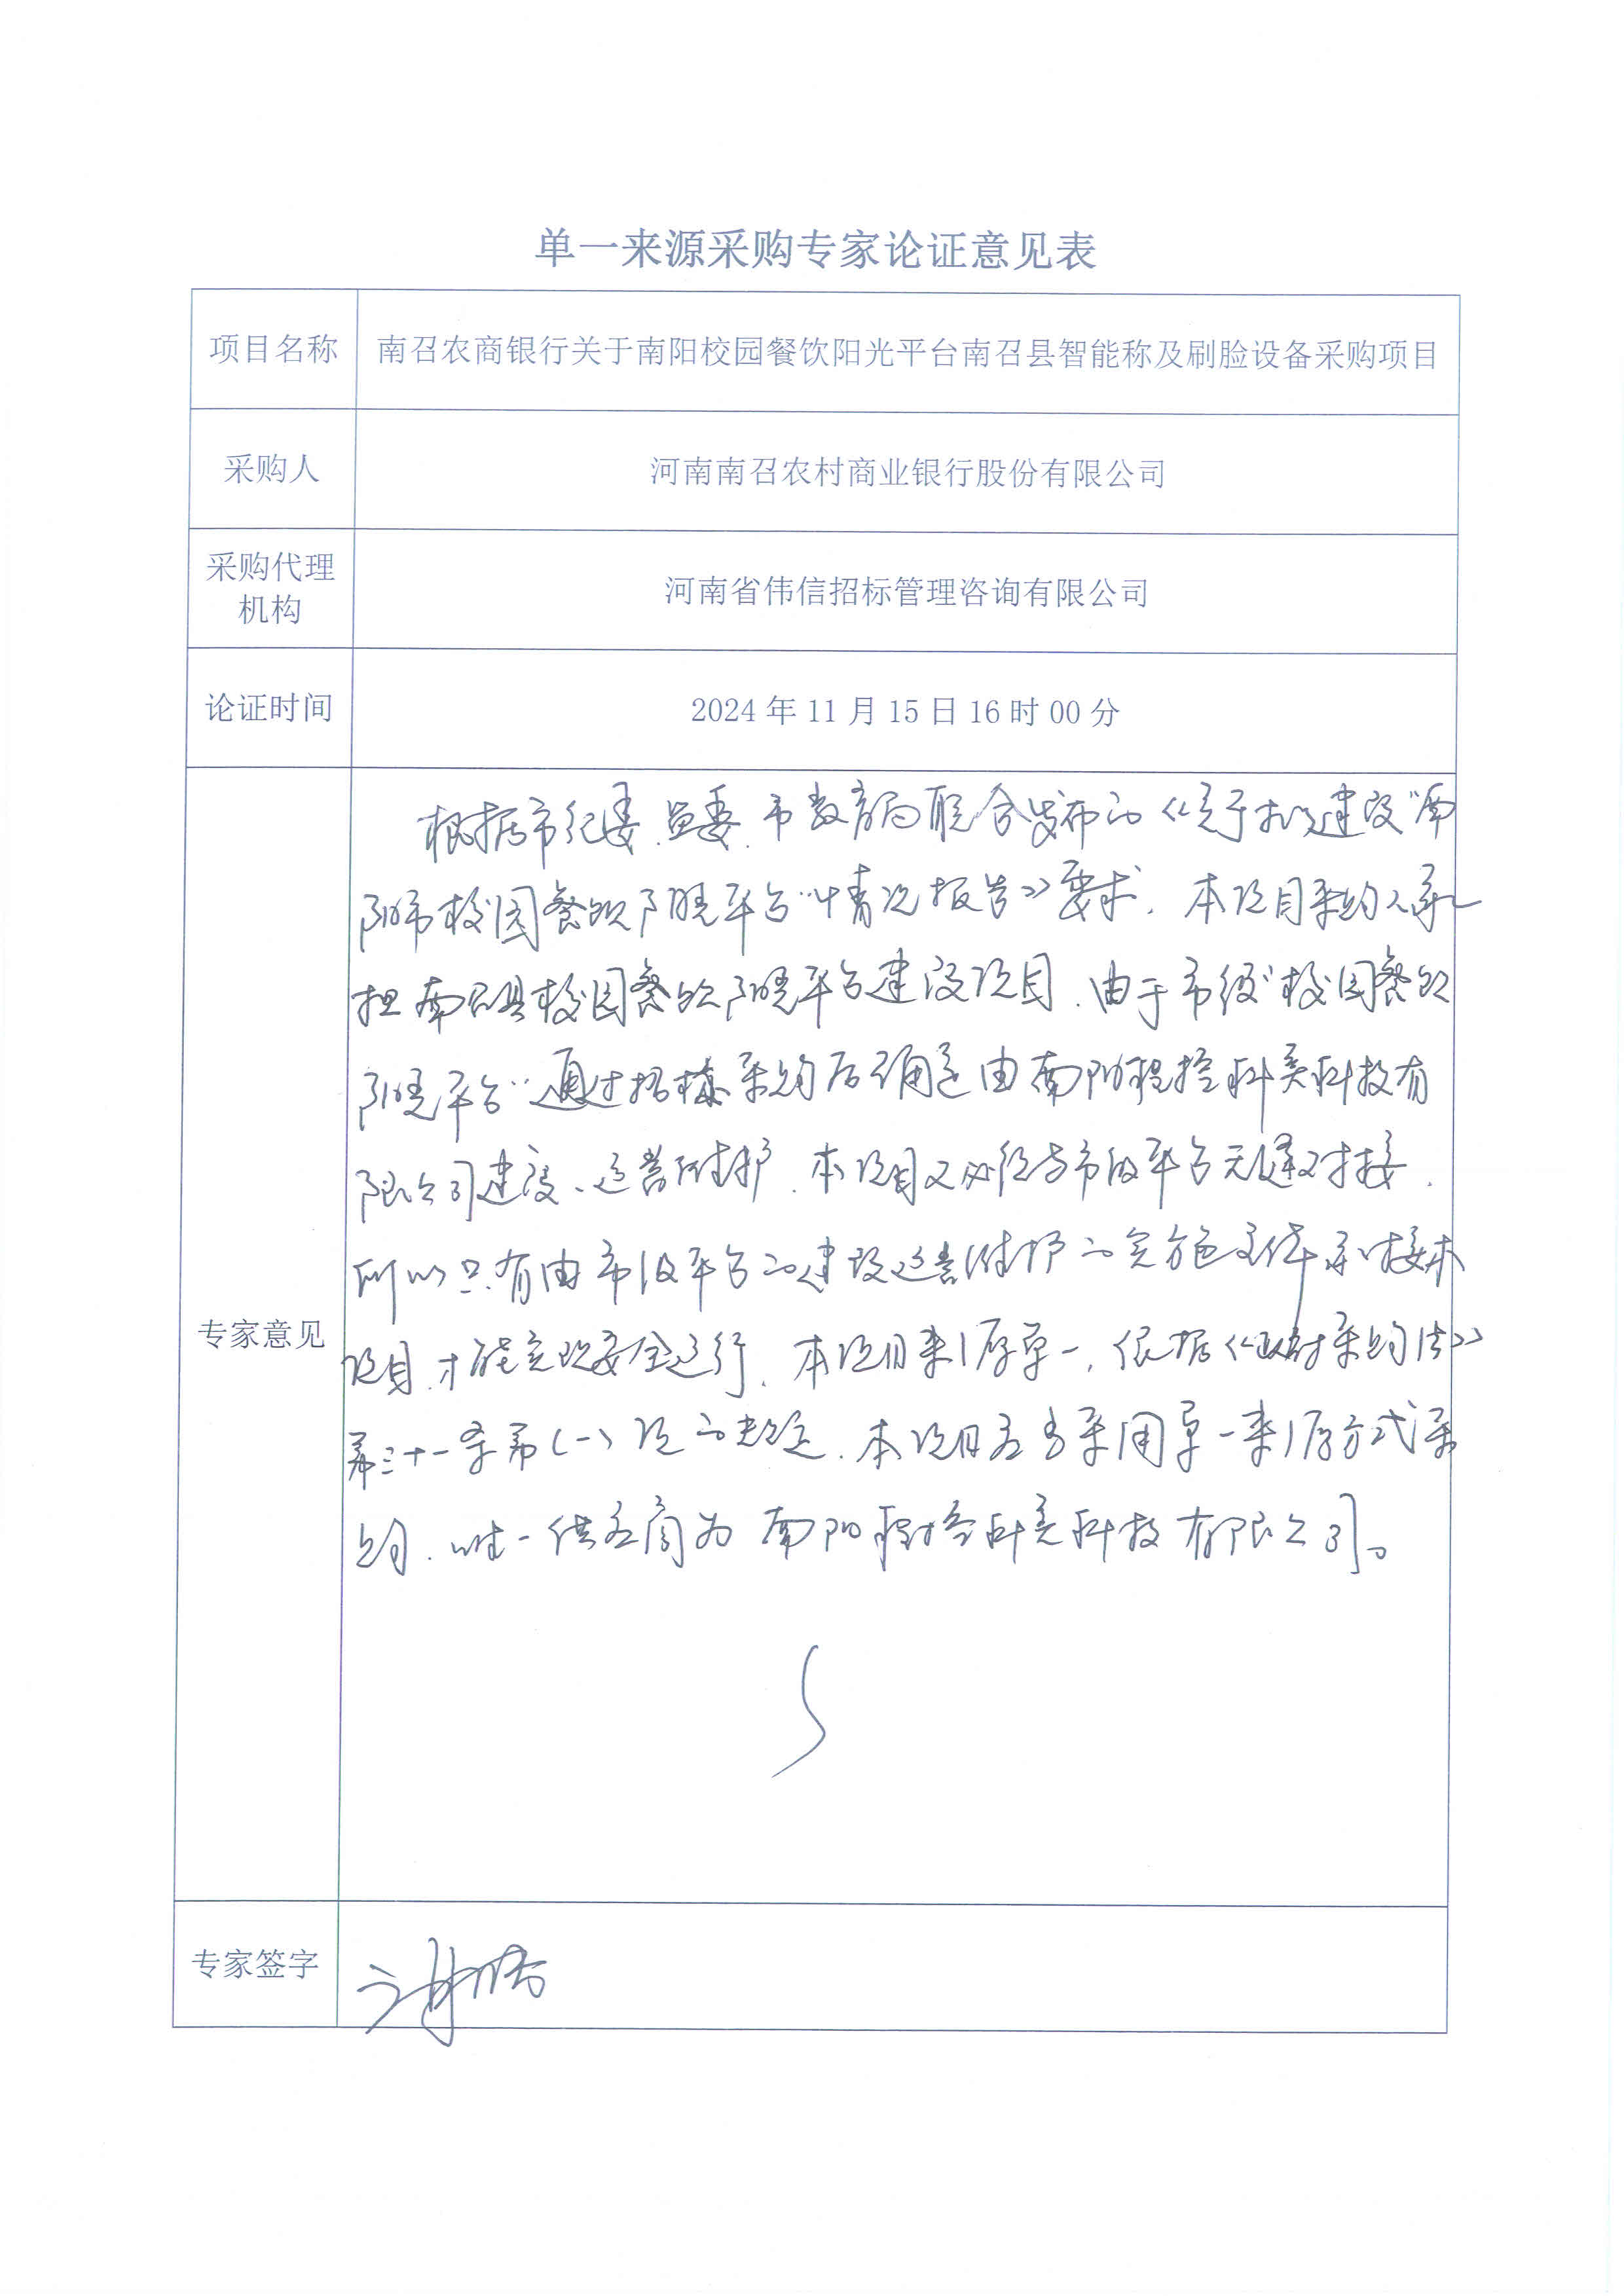 单一来源采购专家论证意见表
项目名称
南召农商银行关于南阳校园餐饮阳光平台南召县智能称及刷脸设备采购项目
采购人
河南南召农村商业银行股份有限公司
采购代理
机构
河南省伟信招标管理咨询有限公司
论证时间
2024年11月15日16时00分
专家意见
根据市纪委.监委.市教育局联合发布的《关于拟建设"南
阳市校园餐饮阳光平台"情况报告》要求.本项目采购人承
担南召县校园餐饮阳光平台建设项目.由于市级"校园餐饮
阳光平台"通过招标采购后确定由南阳程控科美科技有
限公司建设、运营维护.本项目又必须与市级平台无缝对接.
所以只有由市级平台的建设运营维护的实施主体来对接本
项目.才能实现安全运行.本项目来源单一,依据《政府采购法》
第三十一条第(一)项的规定.本项目应当采用单一来源方式采
购.唯一供应商为南阳程控科美科技有限公司。
专家签字